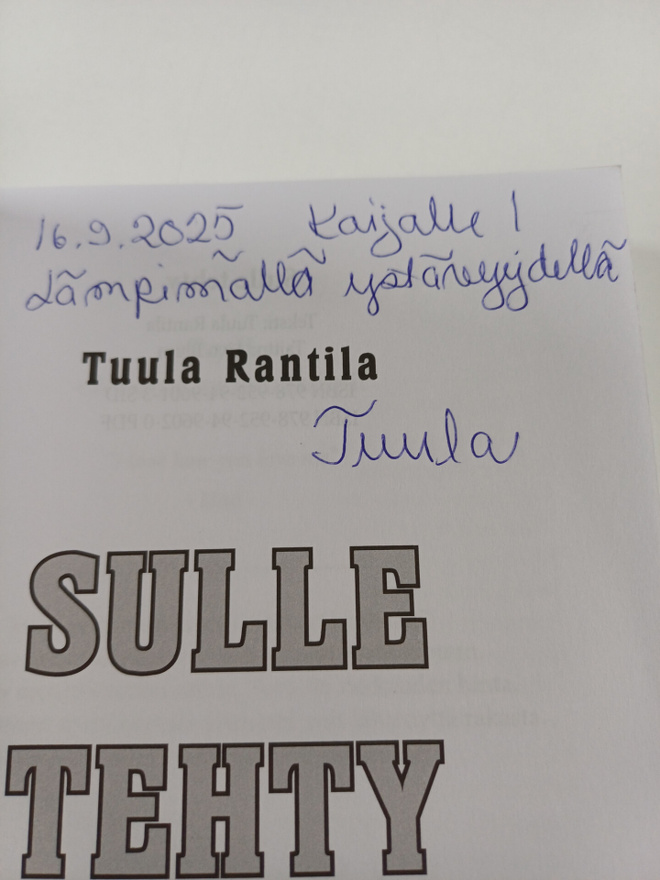 16.9.2025 Kaijalle !
Lämpimällä ystävyydellä
Tuula Rantila
Tuula
SULLE
TEHTY